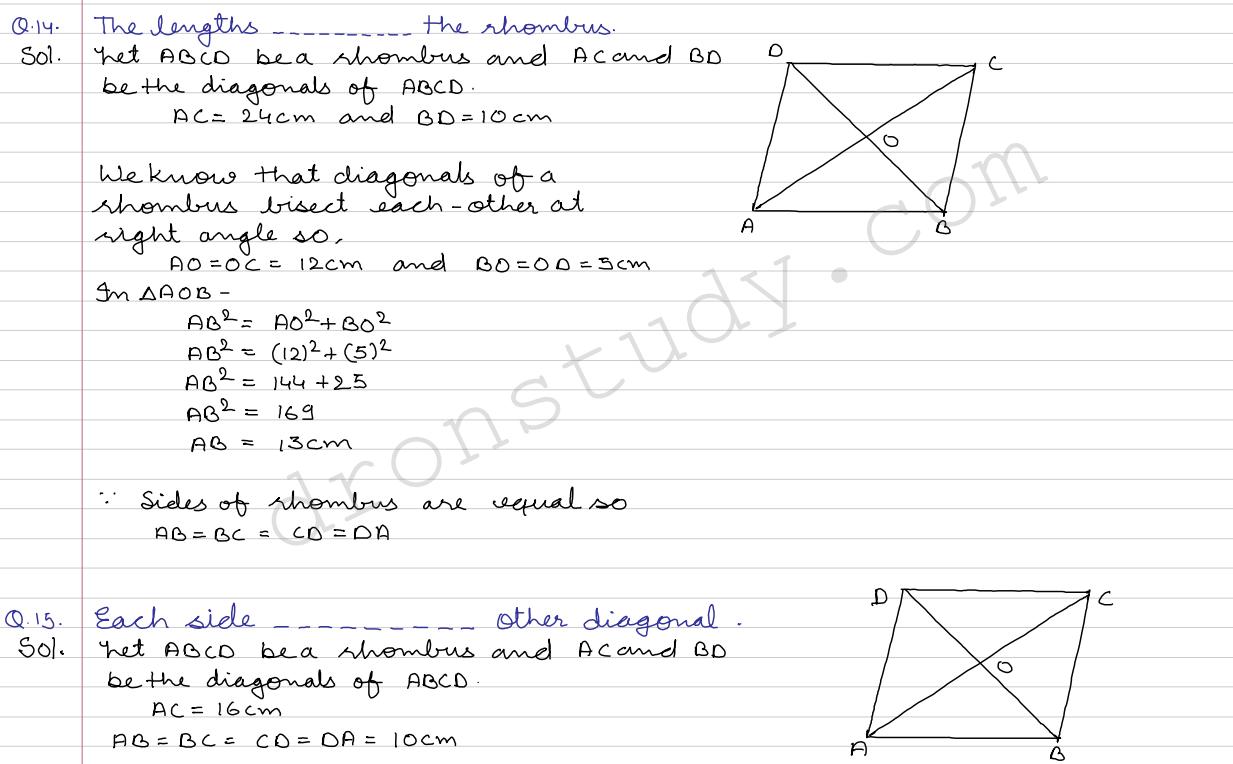 Q.14. The lengths __________ the rhombus.
Sol. Let ABCD be a rhombus and AC and BD
be the diagonals of ABCD.
AC = 24cm and BD = 10cm
D
C
O
A
B
We know that diagonals of a
rhombus bisect each-other at
right angle so,
AO = OC = 12cm and BO = OD = 5cm
In △AOB -
AB² = AO² + BO²
AB² = (12)² + (5)²
AB² = 144 + 25
AB² = 169
AB = 13cm
∵ Sides of rhombus are equal so
AB = BC = CD = DA
Q.15. Each side __________ other diagonal.
Sol. Let ABCD be a rhombus and AC and BD
be the diagonals of ABCD.
AC = 16cm
AB = BC = CD = DA = 10cm
D
C
O
A
B
dronstudy.com